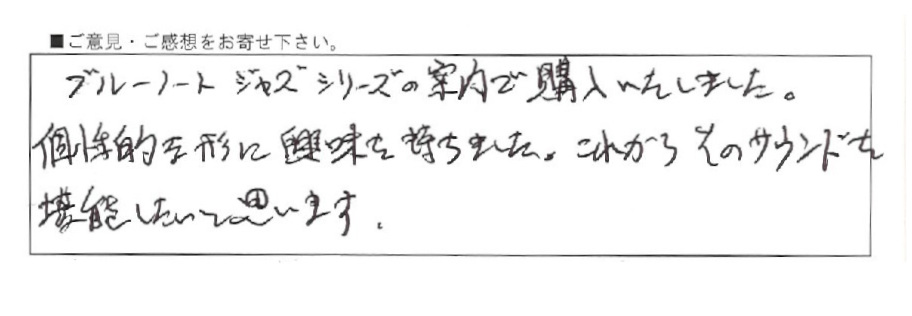 ■ご意見・ご感想をお寄せ下さい。
ブルーノート ジャズシリーズの案内で購入いたしました。
個性的な形に興味を持ちました。これからそのサウンドを
堪能したいと思います.